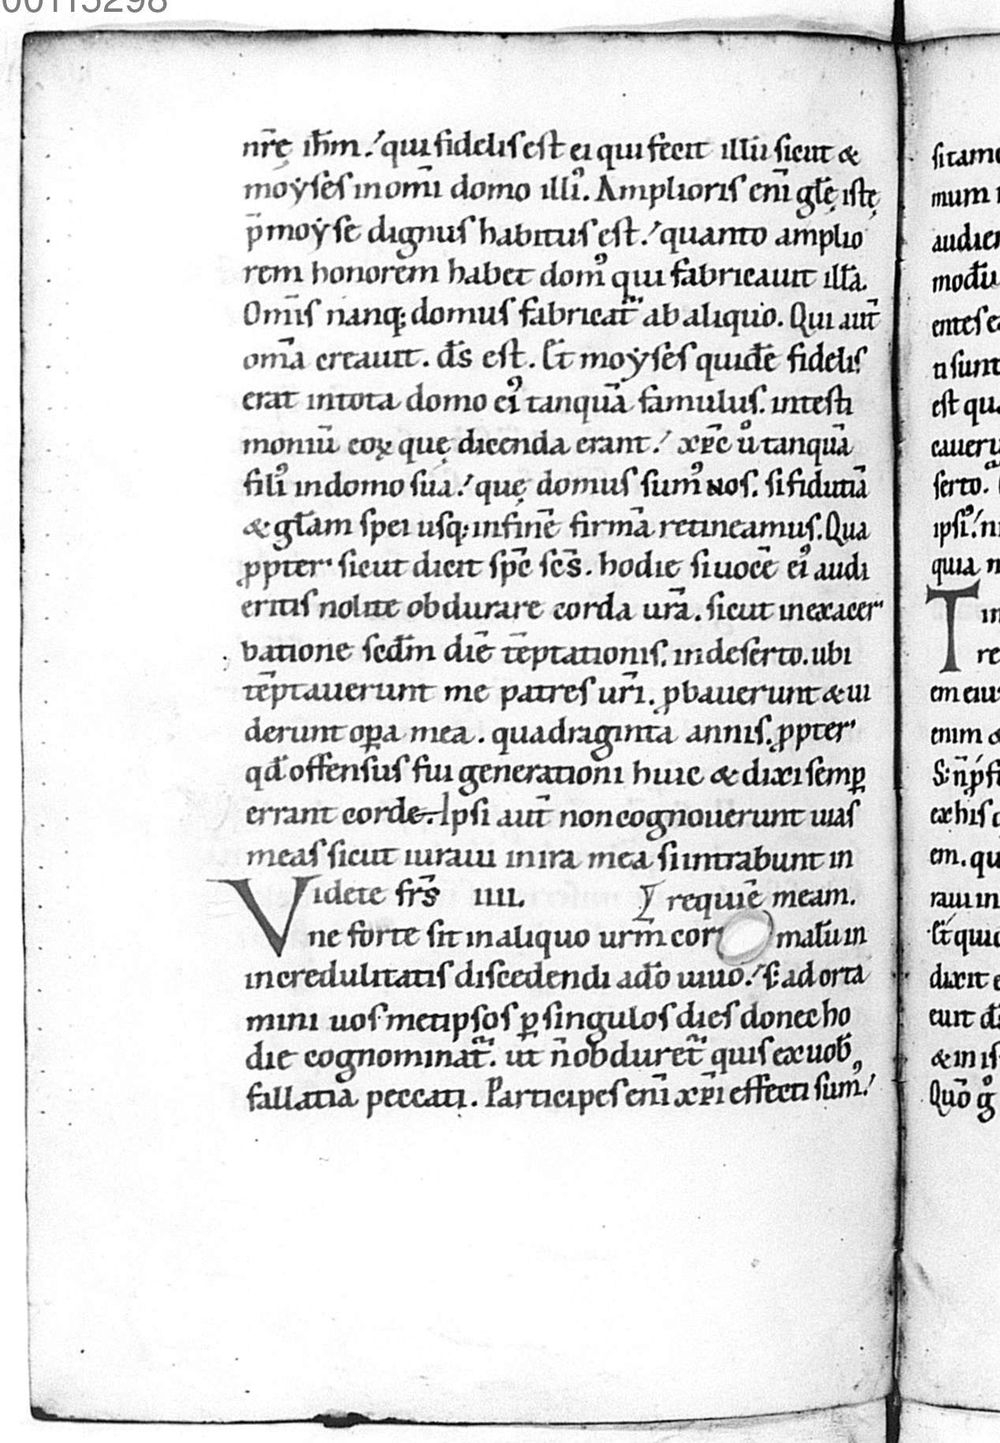 00115298
nr̄ę ih̄m.' qui fidelis est ei qui fecit illū sicut &
moẏses in om̄i domo illiꝰ. Amplioris eni̅ gl̄ę istę
p̄ moẏse dignus habitus est.' quanto amplio
rem honorem habet domꝰ qui fabricauit ill̄a.
Om̄is nanq; domus fabricat̄ ab aliquo. Qui aut̄
om̄a creauit. d̄s est. Et moẏses quidē fidelis
erat in tota domo eiꝰ tanquā famulus. in testi
moniū eoꝝ quę dicenda erant.' xp̄c ů tanquā
filiꝰ in domo sua.' quę domus sumꝰ nos. si fidutiā
& gl̄am spei usq; in finē firmā retineamus. Qua
ꝓpter sicut dicit sp̄c sc̄s. hodie si uocē eiꝰ audi
eritis nolite obdurare corda ur̄a. sicut in exacer
batione secd̄m diē tēptationis. in deserto. ubi
tēptauerunt me patres ur̄i. ꝓbauerunt & ui
derunt oꝑa mea. quadraginta annis. ꝓpter
qd̄ offensus fui generationi huic & dixi semꝑ
errant corde. Ipsi aut̄ non cognouerunt uias
meas sicut iuraui in ira mea si intrabunt in
Videte fr̄s IIII. requiē meam.
ne forte sit in aliquo ur̄m cor mal̄u in
incredulitatis discedendi a dō uiuo.' S; adorta
mini uosmetipsos ꝑ singulos dies donec ho
die cognominat̄. ut n̄ obduret̄ quis ex uob̄
fallatia peccati. Participes eni̅ xp̄i effecti sumꝰ.'
sitam
mum
audien
mod̄u
entes e
ti sunt
est qu
cauer
serto.
ipsiꝰ.' n
quia n
T in
re
em eiu
enim &
S; n̄ ꝓfu
ex his q
em. qu
raui in
Et quid
dixit e
euit d
& in is
Quō g̊